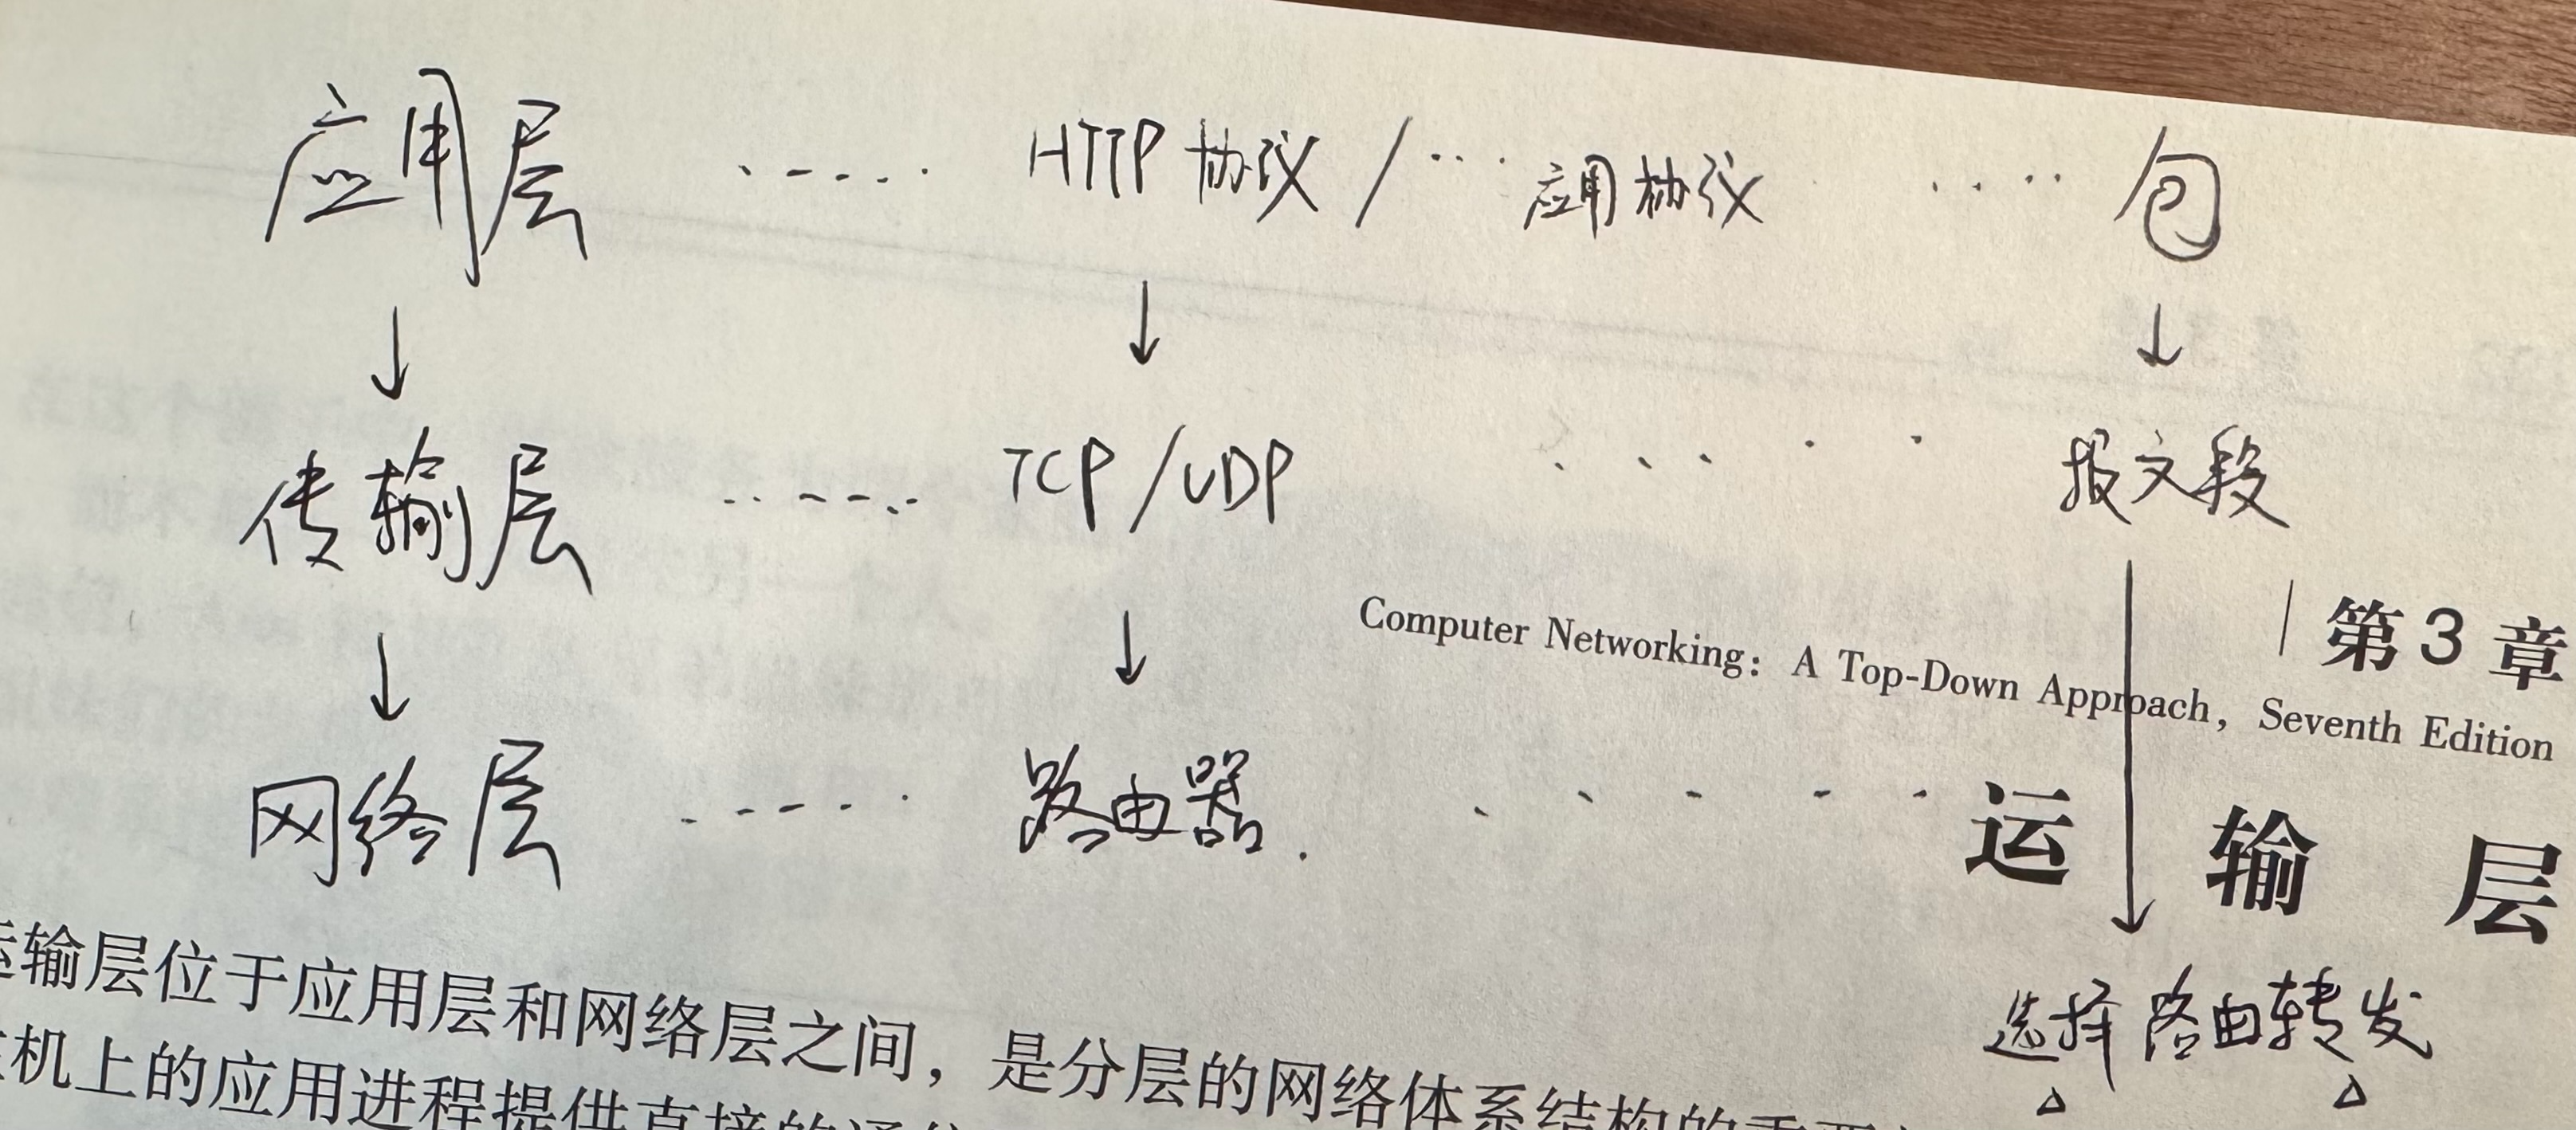 应用层 ····· HTTP 协议 / ··· 应用协议 ···· 包
↓ ↓ ↓
传输层 ····· TCP/UDP ····· 报文段
↓ ↓ ↓
第3章
Computer Networking: A Top-Down Approach, Seventh Edition
网络层 ····· 路由器. ·····
运输层
选择路由转发
运输层位于应用层和网络层之间，是分层的网络体系结构的重要
机上的应用进程提供直接的通信